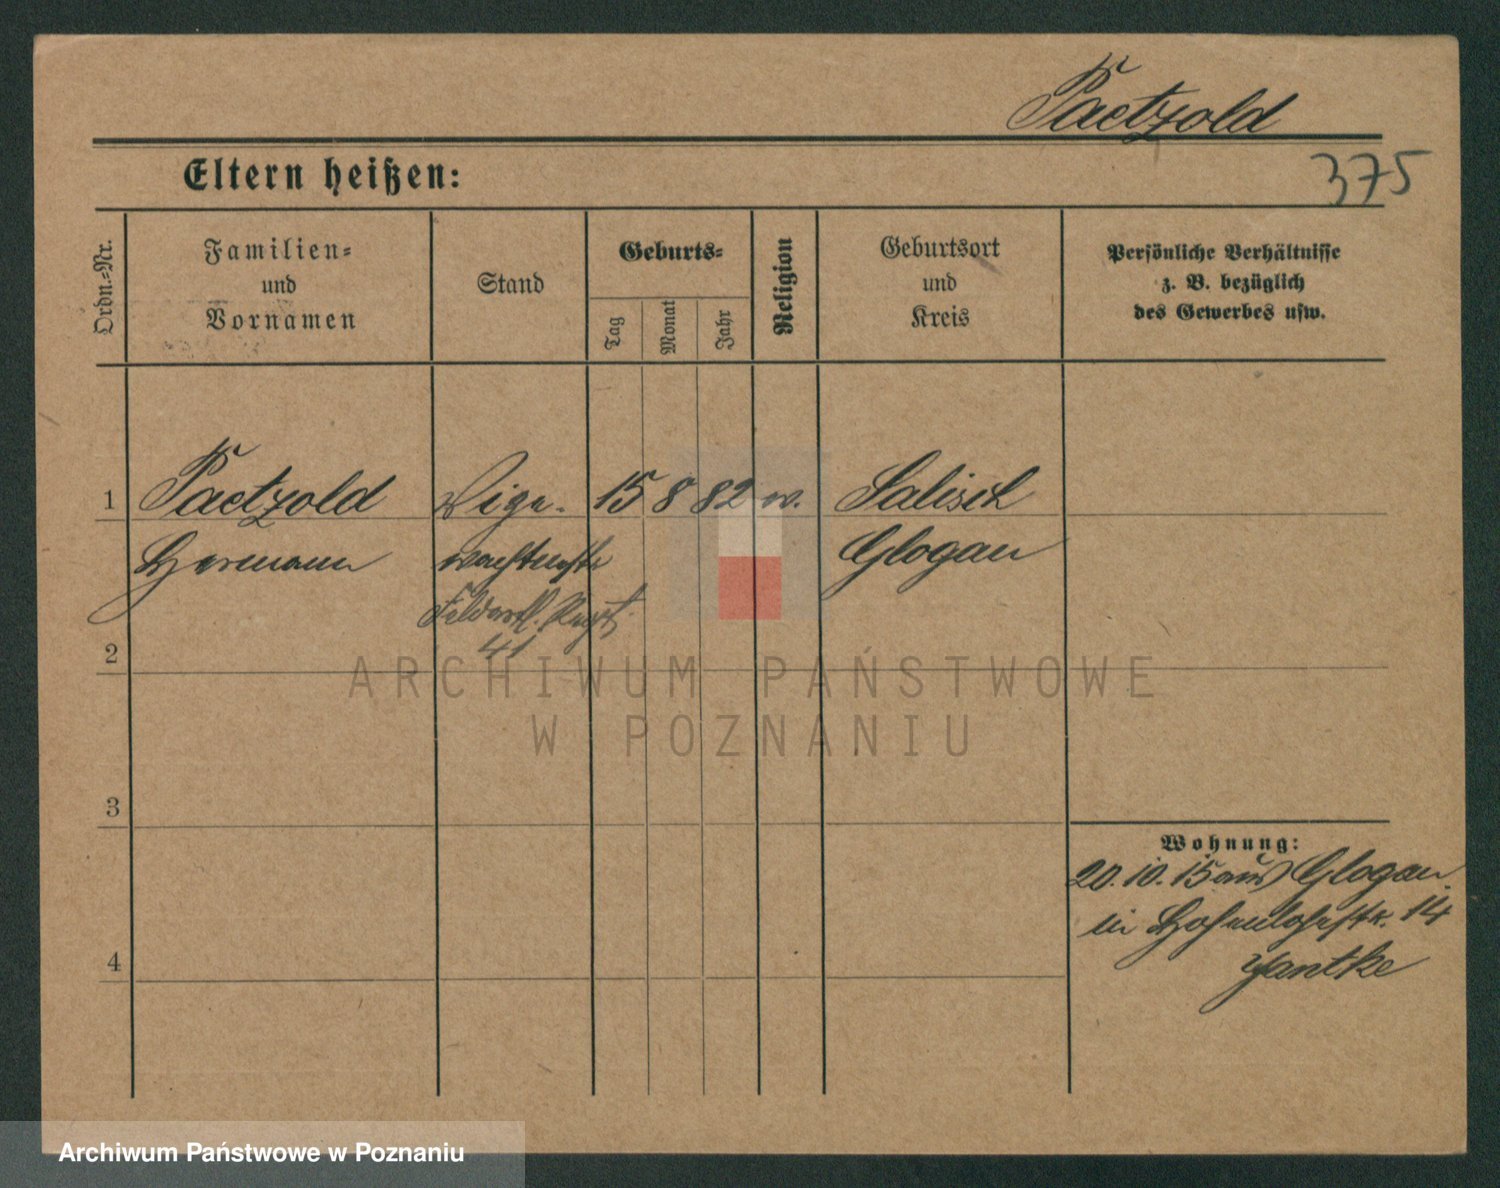 Paetzold
375
Eltern heißen:
Ordn.=Nr.
Familien=
und
Vornamen
Stand
Geburts=
Tag
Monat
Jahr
Religion
Geburtsort
und
Kreis
Persönliche Verhältnisse
z. B. bezüglich
des Gewerbes usw.
1 Paetzold 15 8 82 Salisch
Hermann wachtmstr Glogau
Feldartl. Regt.
41
2
3
4
Wohnung:
20.10.15 aus Glogau
in Hohenlohestr. 14
Jantke
ARCHIWUM PAŃSTWOWE
W POZNANIU
Archiwum Państwowe w Poznaniu